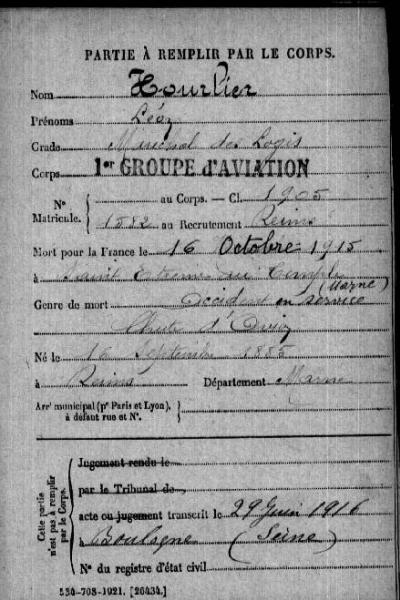 PARTIE À REMPLIR PAR LE CORPS.
Nom Hourlier
Prénoms Léon
Grade Maréchal des Logis
Corps 1er GROUPE d'AVIATION
N° Matricule. { au Corps. — Cl. 1905
1582 au Recrutement Reims
Mort pour la France le 16 Octobre 1915
à Saint Etienne au Temple (Marne)
Genre de mort Accident en service
Chute d'Avion
Né le 16 Septembre 1885
à Reims Département Marne
Arrt municipal (pr Paris et Lyon), à défaut rue et N°. }
Cette partie n'est pas à remplir par le Corps.
Jugement rendu le
par le Tribunal de
acte ou jugement transcrit le 29 Juin 1916
à Boulogne (Seine)
N° du registre d'état civil
534-708-1921. [26434.]